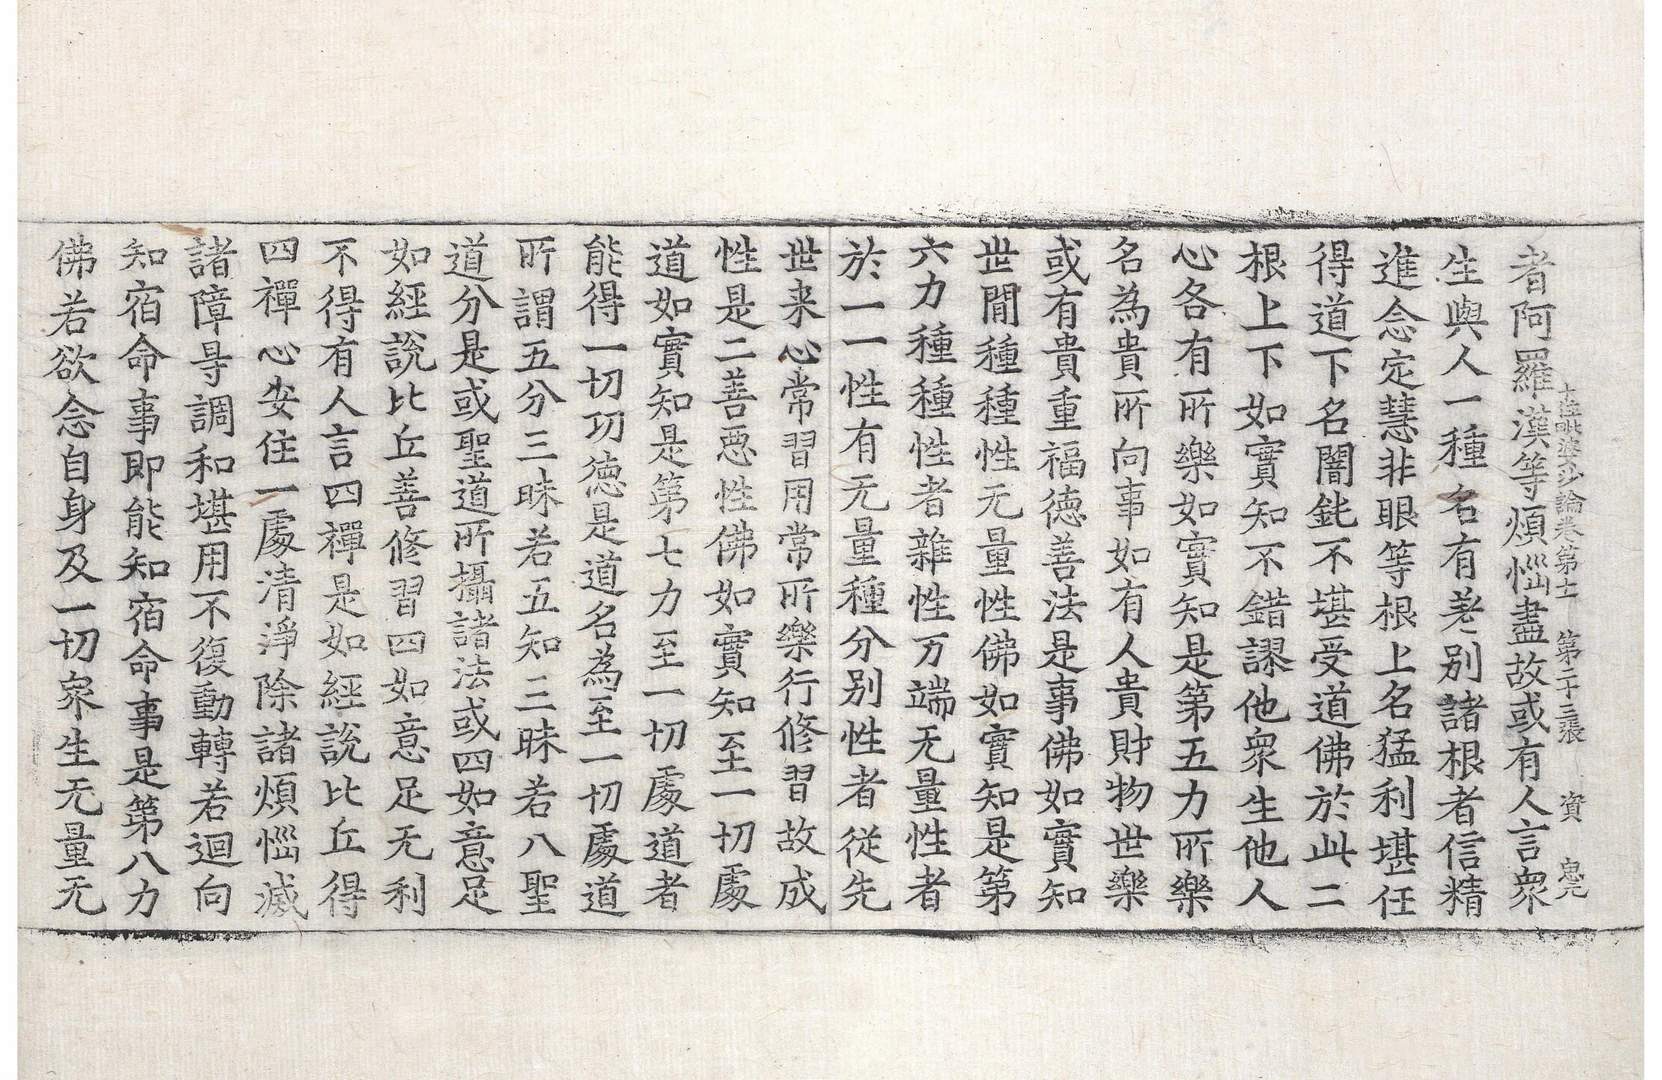 十住毗婆沙論卷第十一 第二十三張 資 惠元
者阿羅漢等煩惱盡故或有人言衆
生與人一種名有差別諸根者信精
進念定慧非眼等根上名猛利堪任
得道下名闇鈍不堪受道佛於此二
根上下如實知不錯謬他衆生他人
心各有所樂如實知是第五力所樂
名為貴所向事如有人貴財物世樂
或有貴重福德善法是事佛如實知
世閒種種性无量性佛如實知是第
六力種種性者雜性万端无量性者
於一一性有无量種分別性者從先
世来心常習用常所樂行修習故成
性是二善惡性佛如實知至一切處
道如實知是第七力至一切處道者
能得一切功德是道名為至一切處道
所謂五分三昧若五知三昧若八聖
道分是或聖道所攝諸法或四如意足
如經說比丘善修習四如意足无利
不得有人言四禪是如經說比丘得
四禪心安住一處清淨除諸煩惱滅
諸障㝵調和堪用不復動轉若迴向
知宿命事即能知宿命事是第八力
佛若欲念自身及一切衆生无量无